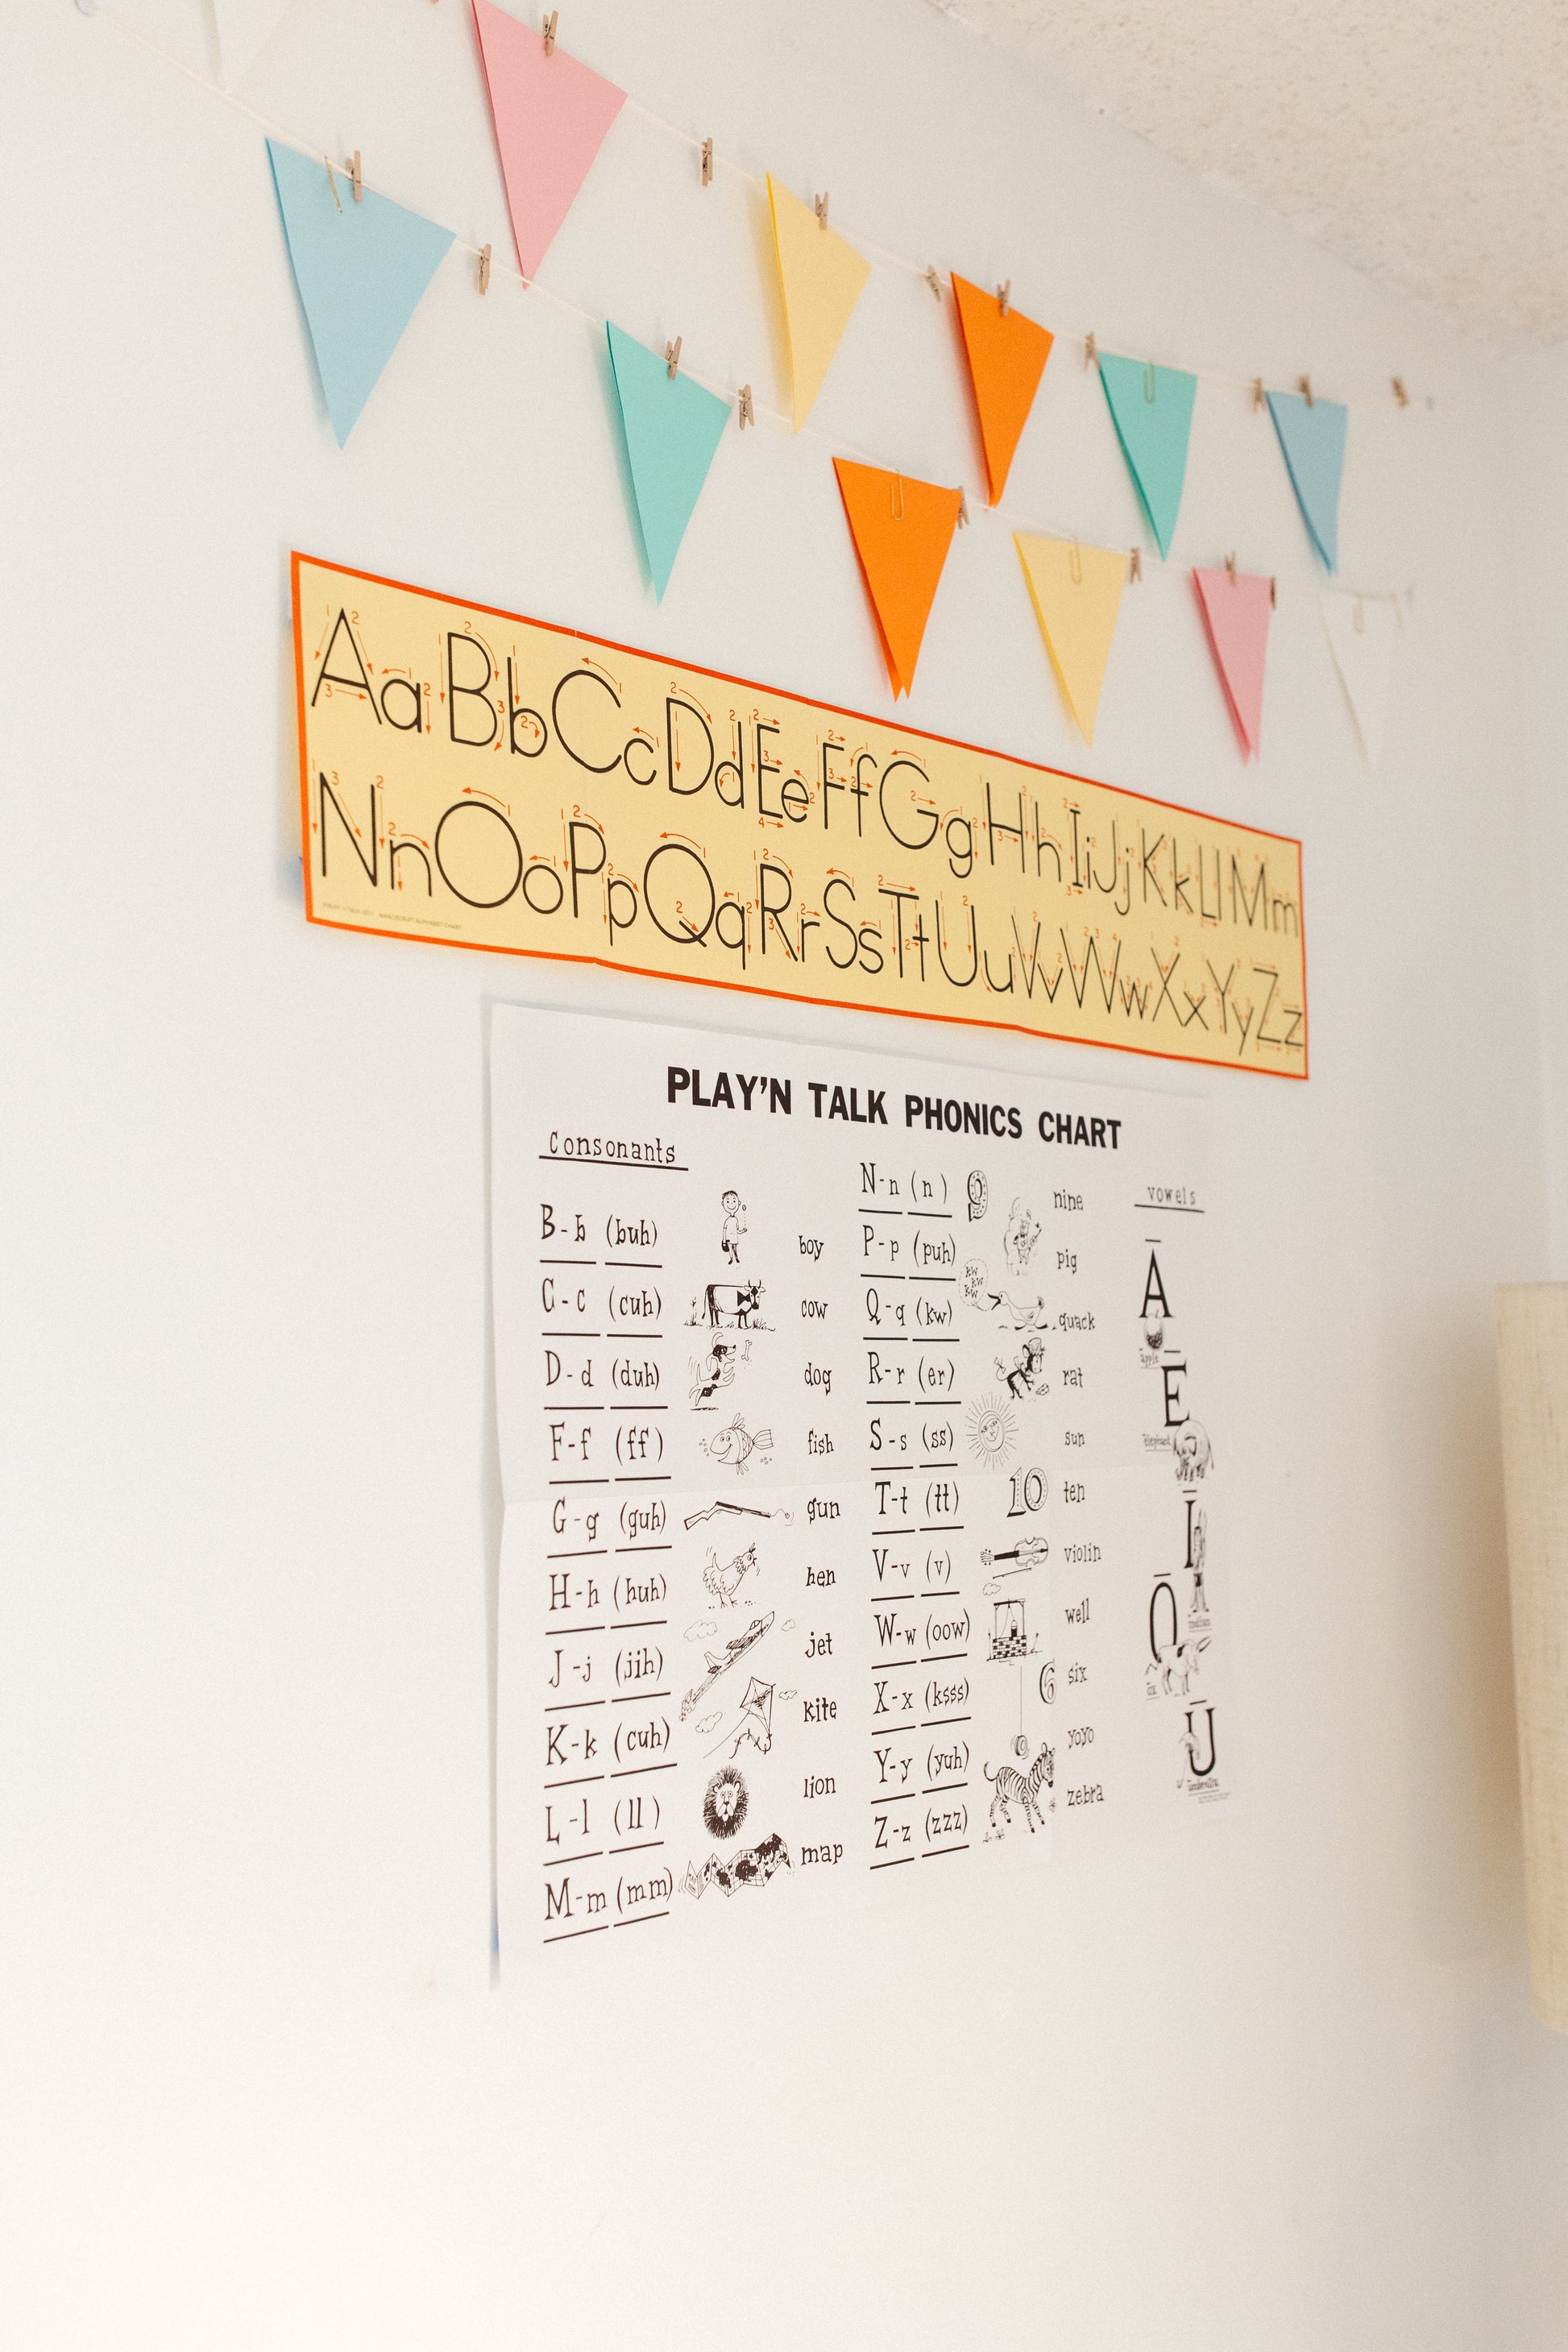 Aa Bb Cc Dd Ee Ff Gg Hh Ii Jj Kk Ll Mm
Nn Oo Pp Qq Rr Ss Tt Uu Vv Ww Xx Yy Zz
PLAY'N TALK PHONICS CHART
consonants
B-b (buh) boy
C-c (cuh) cow
D-d (duh) dog
F-f (ff) fish
G-g (guh) gun
H-h (huh) hen
J-j (jih) jet
K-k (cuh) kite
L-l (ll) lion
M-m (mm) map
N-n (n) 9 nine
P-p (puh) pig
kw
kw
kw
Q-q (kw) quack
R-r (er) rat
S-s (ss) sun
T-t (tt) 10 ten
V-v (v) violin
W-w (oow) well
X-x (ksss) 6 six
Y-y (yuh) yoyo
Z-z (zzz) zebra
vowels
Ā
apple
Ē
elephant
Ī
indian
Ō
ox
Ū
umbrella